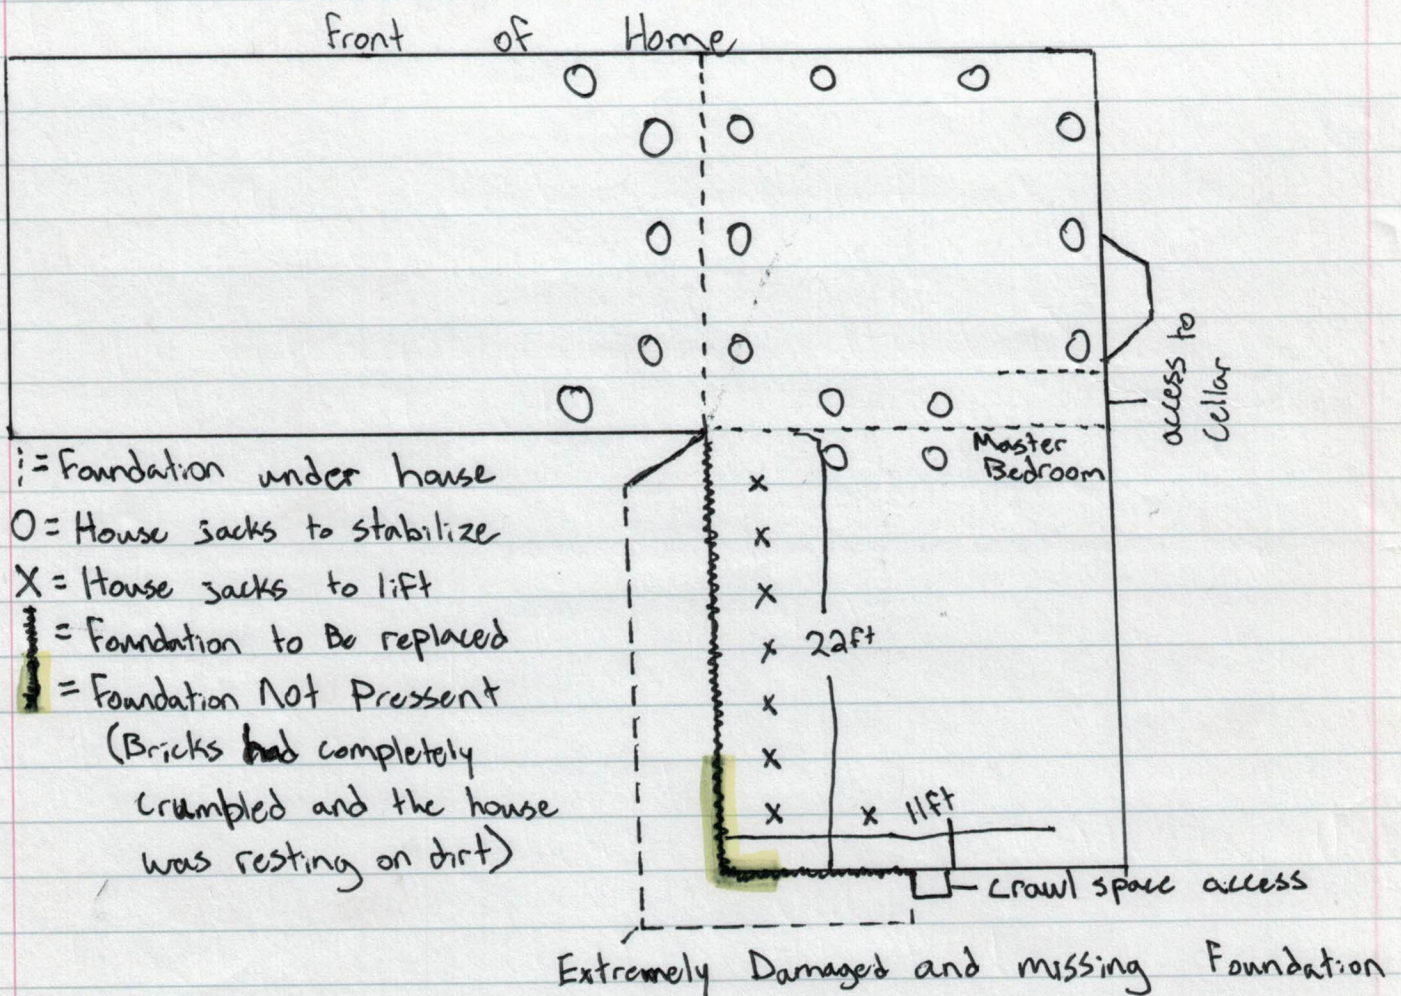 Front of Home
access to
Cellar
Master
Bedroom
¦ = Foundation under house
O = House jacks to stabilize
X = House jacks to lift
= Foundation to Be replaced
= Foundation Not Pressent
(Bricks had completely
crumbled and the house
was resting on dirt)
x
x
x
x
22ft
x
x
x
x
11ft
crawl space access
Extremely Damaged and missing Foundation